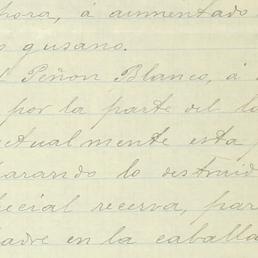 hora, á aumentado
gusano.
Peñon Blanco, á
por la parte del lo
ctualmente esta
parando lo destruid
pecial recerva, par
adre en la caballa